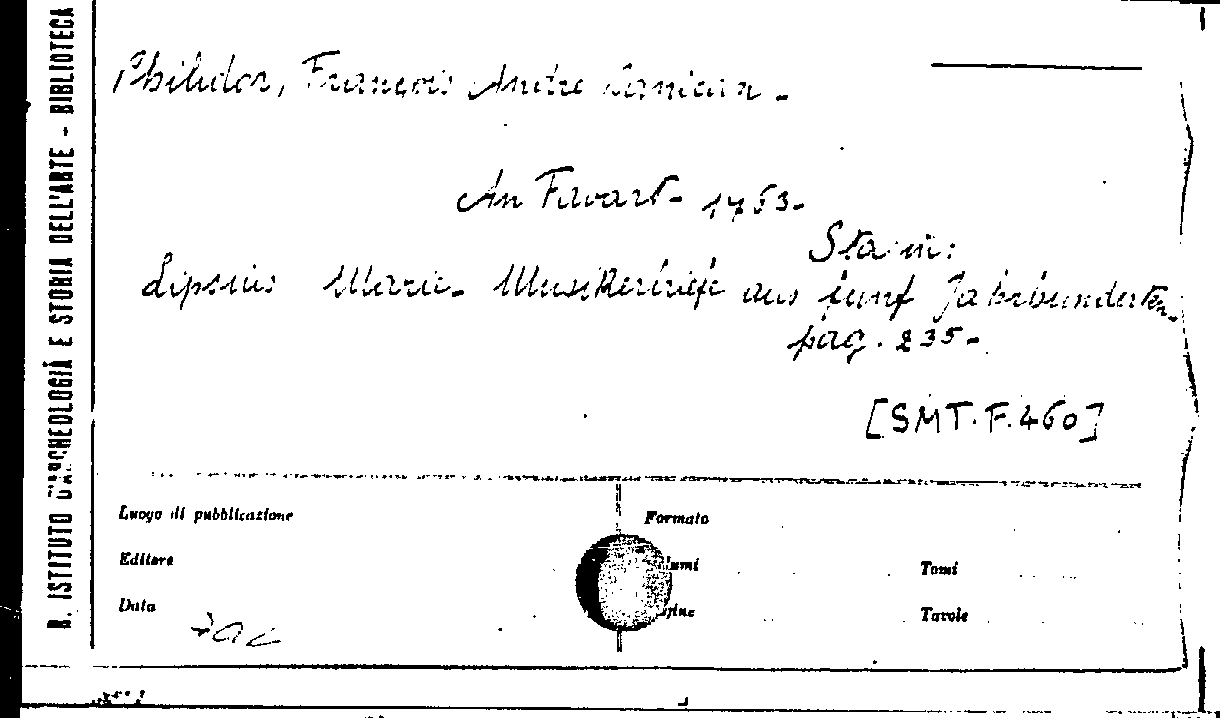 R. ISTITUTO D'ARCHEOLOGIA E STORIA DELL'ARTE - BIBLIOTECA
Philidor, François André Danican -
An Favart - 1763 -
Sta in:
Lipsius Marie - Musikerbriefe aus fünf Jahrhunderten -
pag. 235 -
[SMT. F. 460]
Luogo di pubblicazione
Formato
Editore
Tomi
Data
Tavole